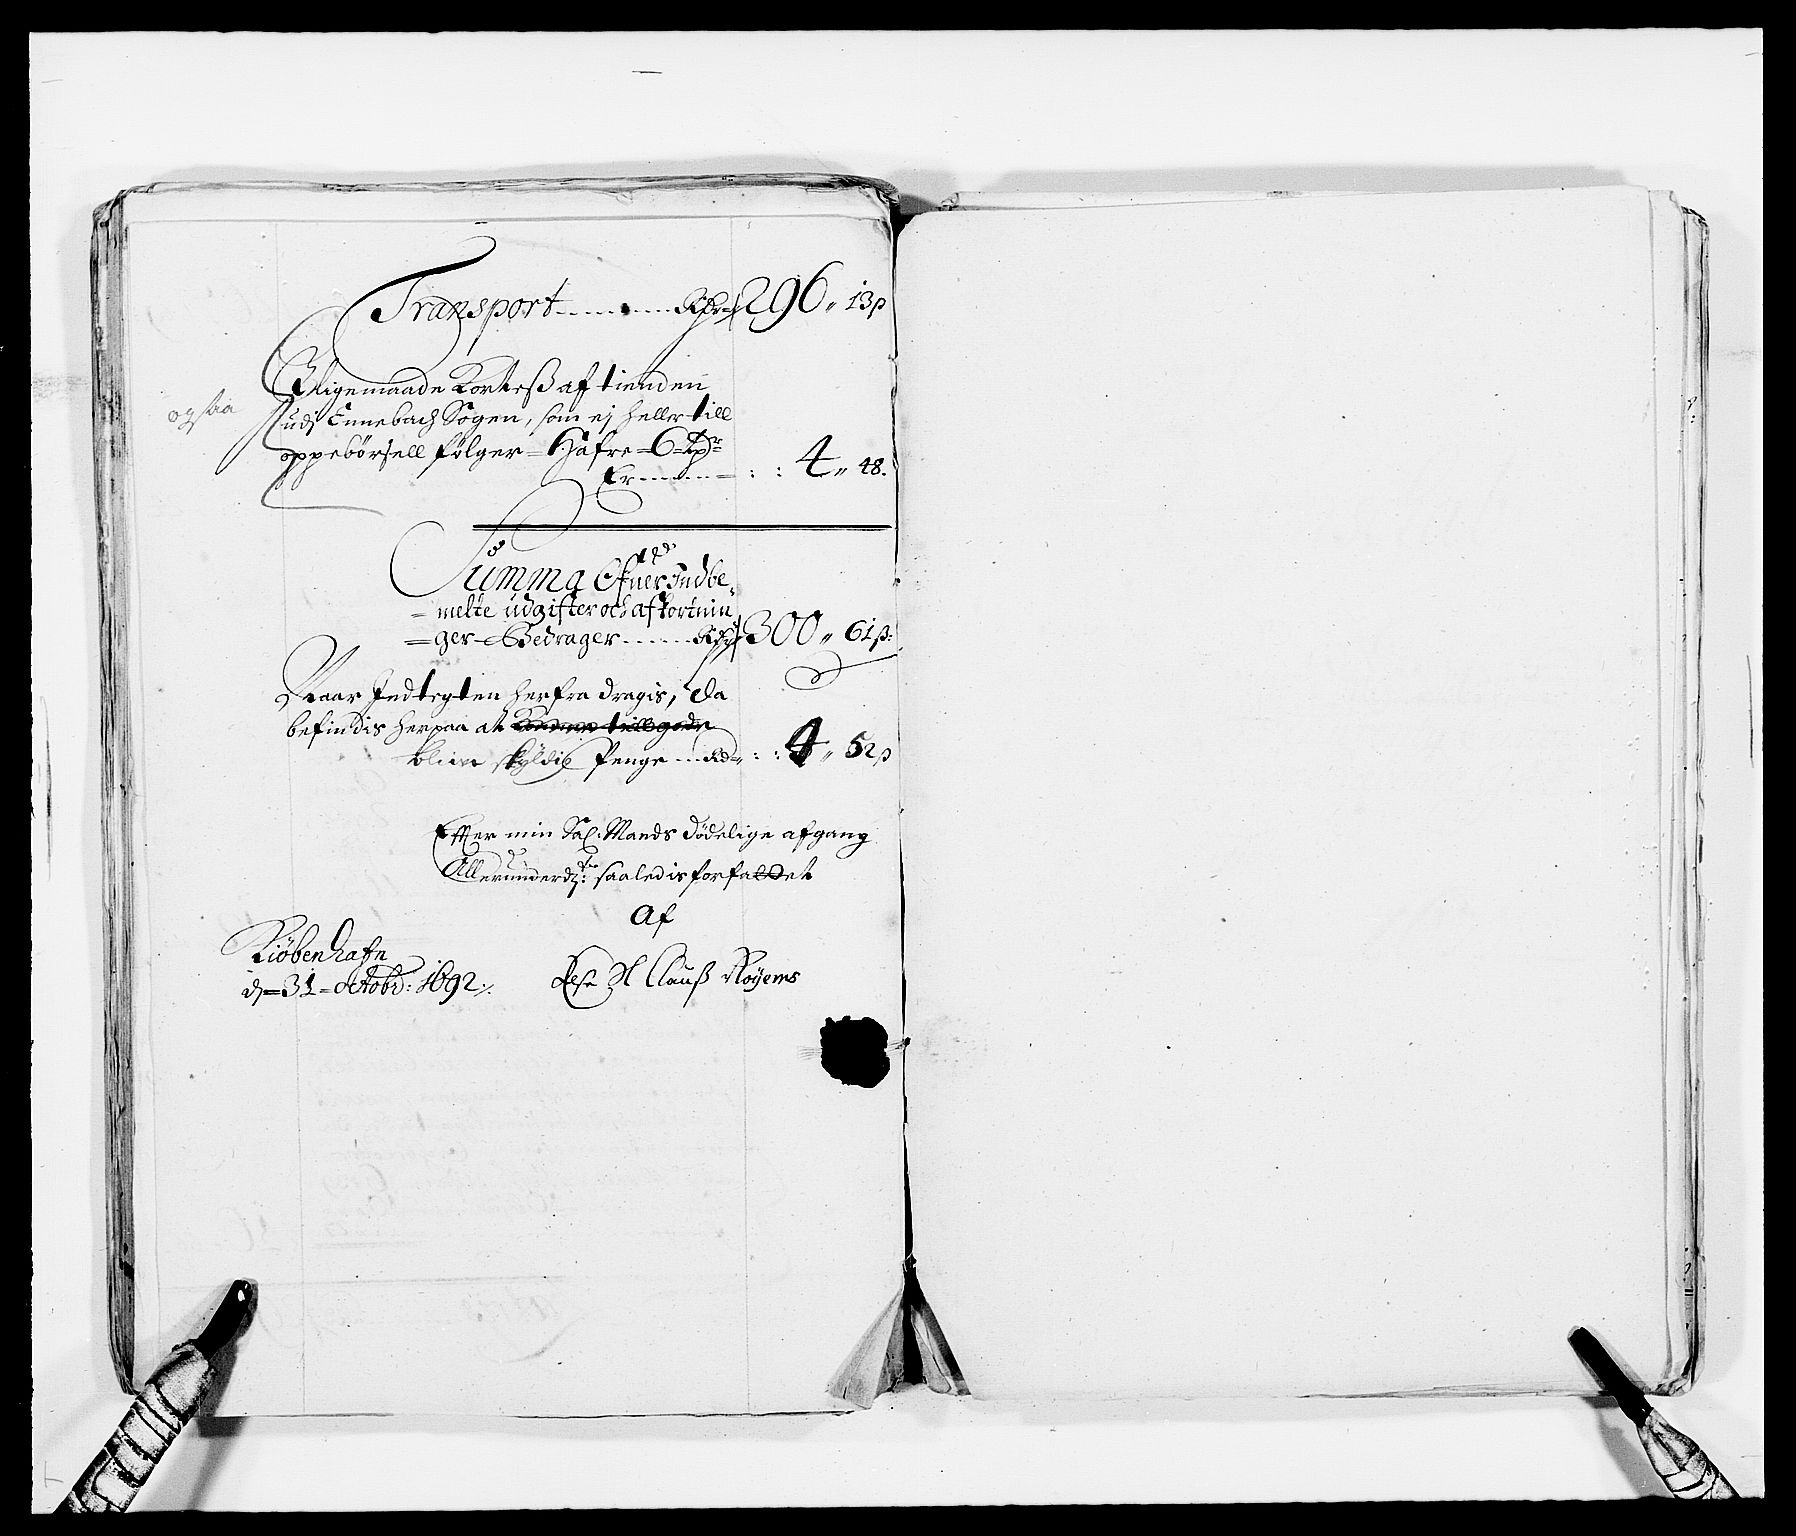 Transport ------ Rdr 296 „ 13 ß
J ligemaade Kortteß af tienden
og saa
udj Ennebach Sogen, som ej heller till
oppebörsell følger = Hafre = 6 =
Er ------ = : : 4 „ 48.
Summa Ofuer Indbe¸
= melte udgifter och afkortnin
= ger - Bedrager ------ Rdr 300 „ 61 ß:
Naar Indtegten herfra dragis, da
befindis herpaa at
blive skyldig Penge --- Rd = : : 4 „ 52 ß
Effter min Sal: Mands dödelige afgang
Allerunderd: saaledis forfattet
Af
Kiöbenhafn
d = 31 = octobr: 1692 ·/.
Sl Clauß Röyems